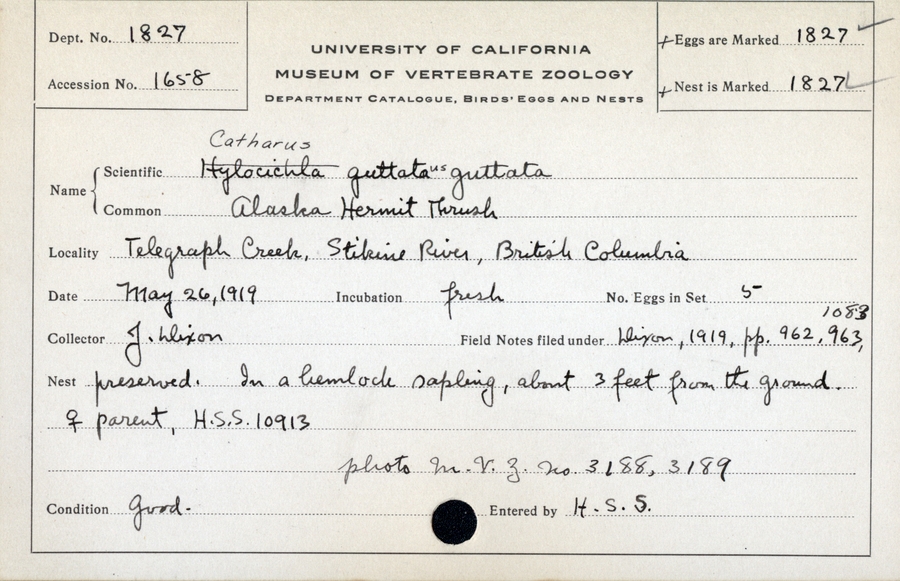 Dept. No. 1827
Accession No. 1658
UNIVERSITY OF CALIFORNIA
MUSEUM OF VERTEBRATE ZOOLOGY
DEPARTMENT CATALOGUE, BIRDS' EGGS AND NESTS
+ Eggs are Marked 1827
+ Nest is Marked 1827
Catharus
Name Scientific Hylocichla guttata us guttata
Common Alaska Hermit Thrush
Locality Telegraph Creek, Stikine River, British Columbia
Date May 26, 1919 Incubation fresh No. Eggs in Set 5
1083
Collector J. Dixon Field Notes filed under Dixon, 1919, pp. 962, 963,
Nest preserved. In a hemlock sapling, about 3 feet from the ground.
♀ parent, H.S.S. 10913
photo M.V.Z. no. 3188, 3189
Condition Good. Entered by H.S.S.